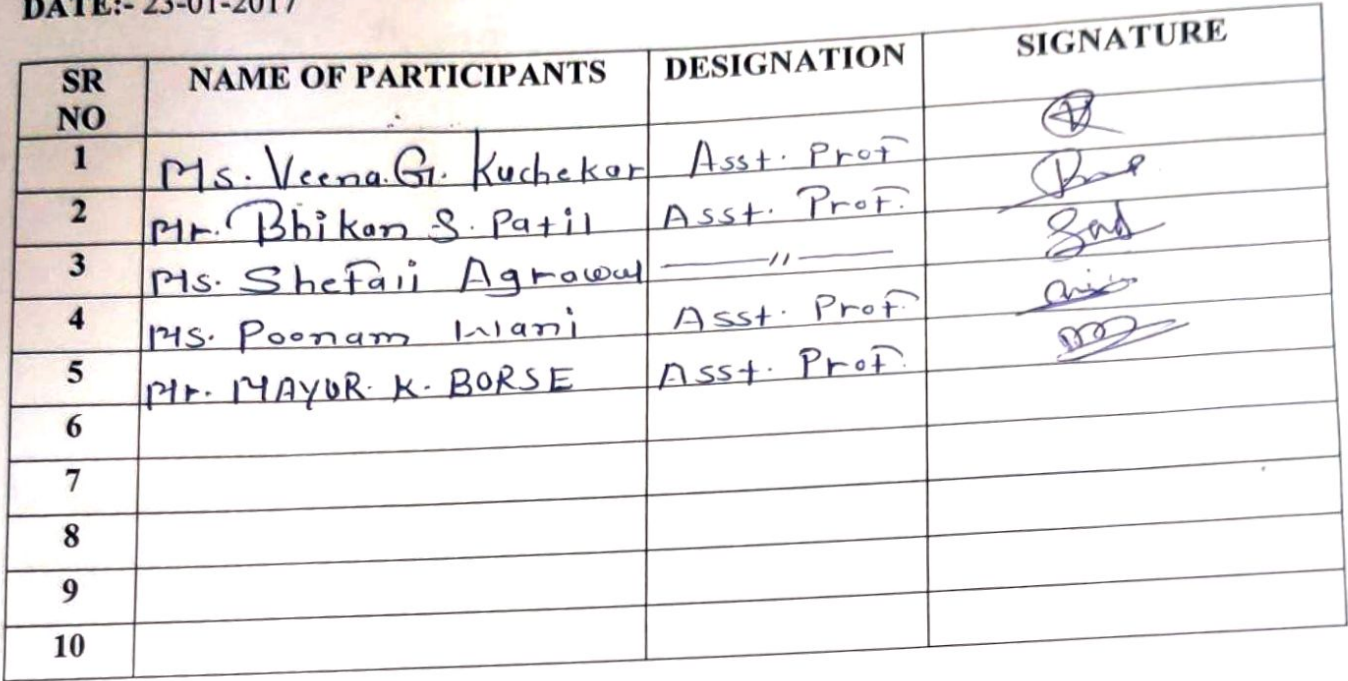 DATE:- 23-01-2017
SR NO NAME OF PARTICIPANTS DESIGNATION SIGNATURE
1 Ms. Veena. G. Kuchekar Asst. Prof
2 Mr. Bhikan S. Patil Asst. Prof.
3 Ms. Shefali Agrawal —— 〃 ——
4 Ms. Poonam Asst. Prof.
5 Mr. MAYUR. K. BORSE Asst. Prof.
6
7
8
9
10